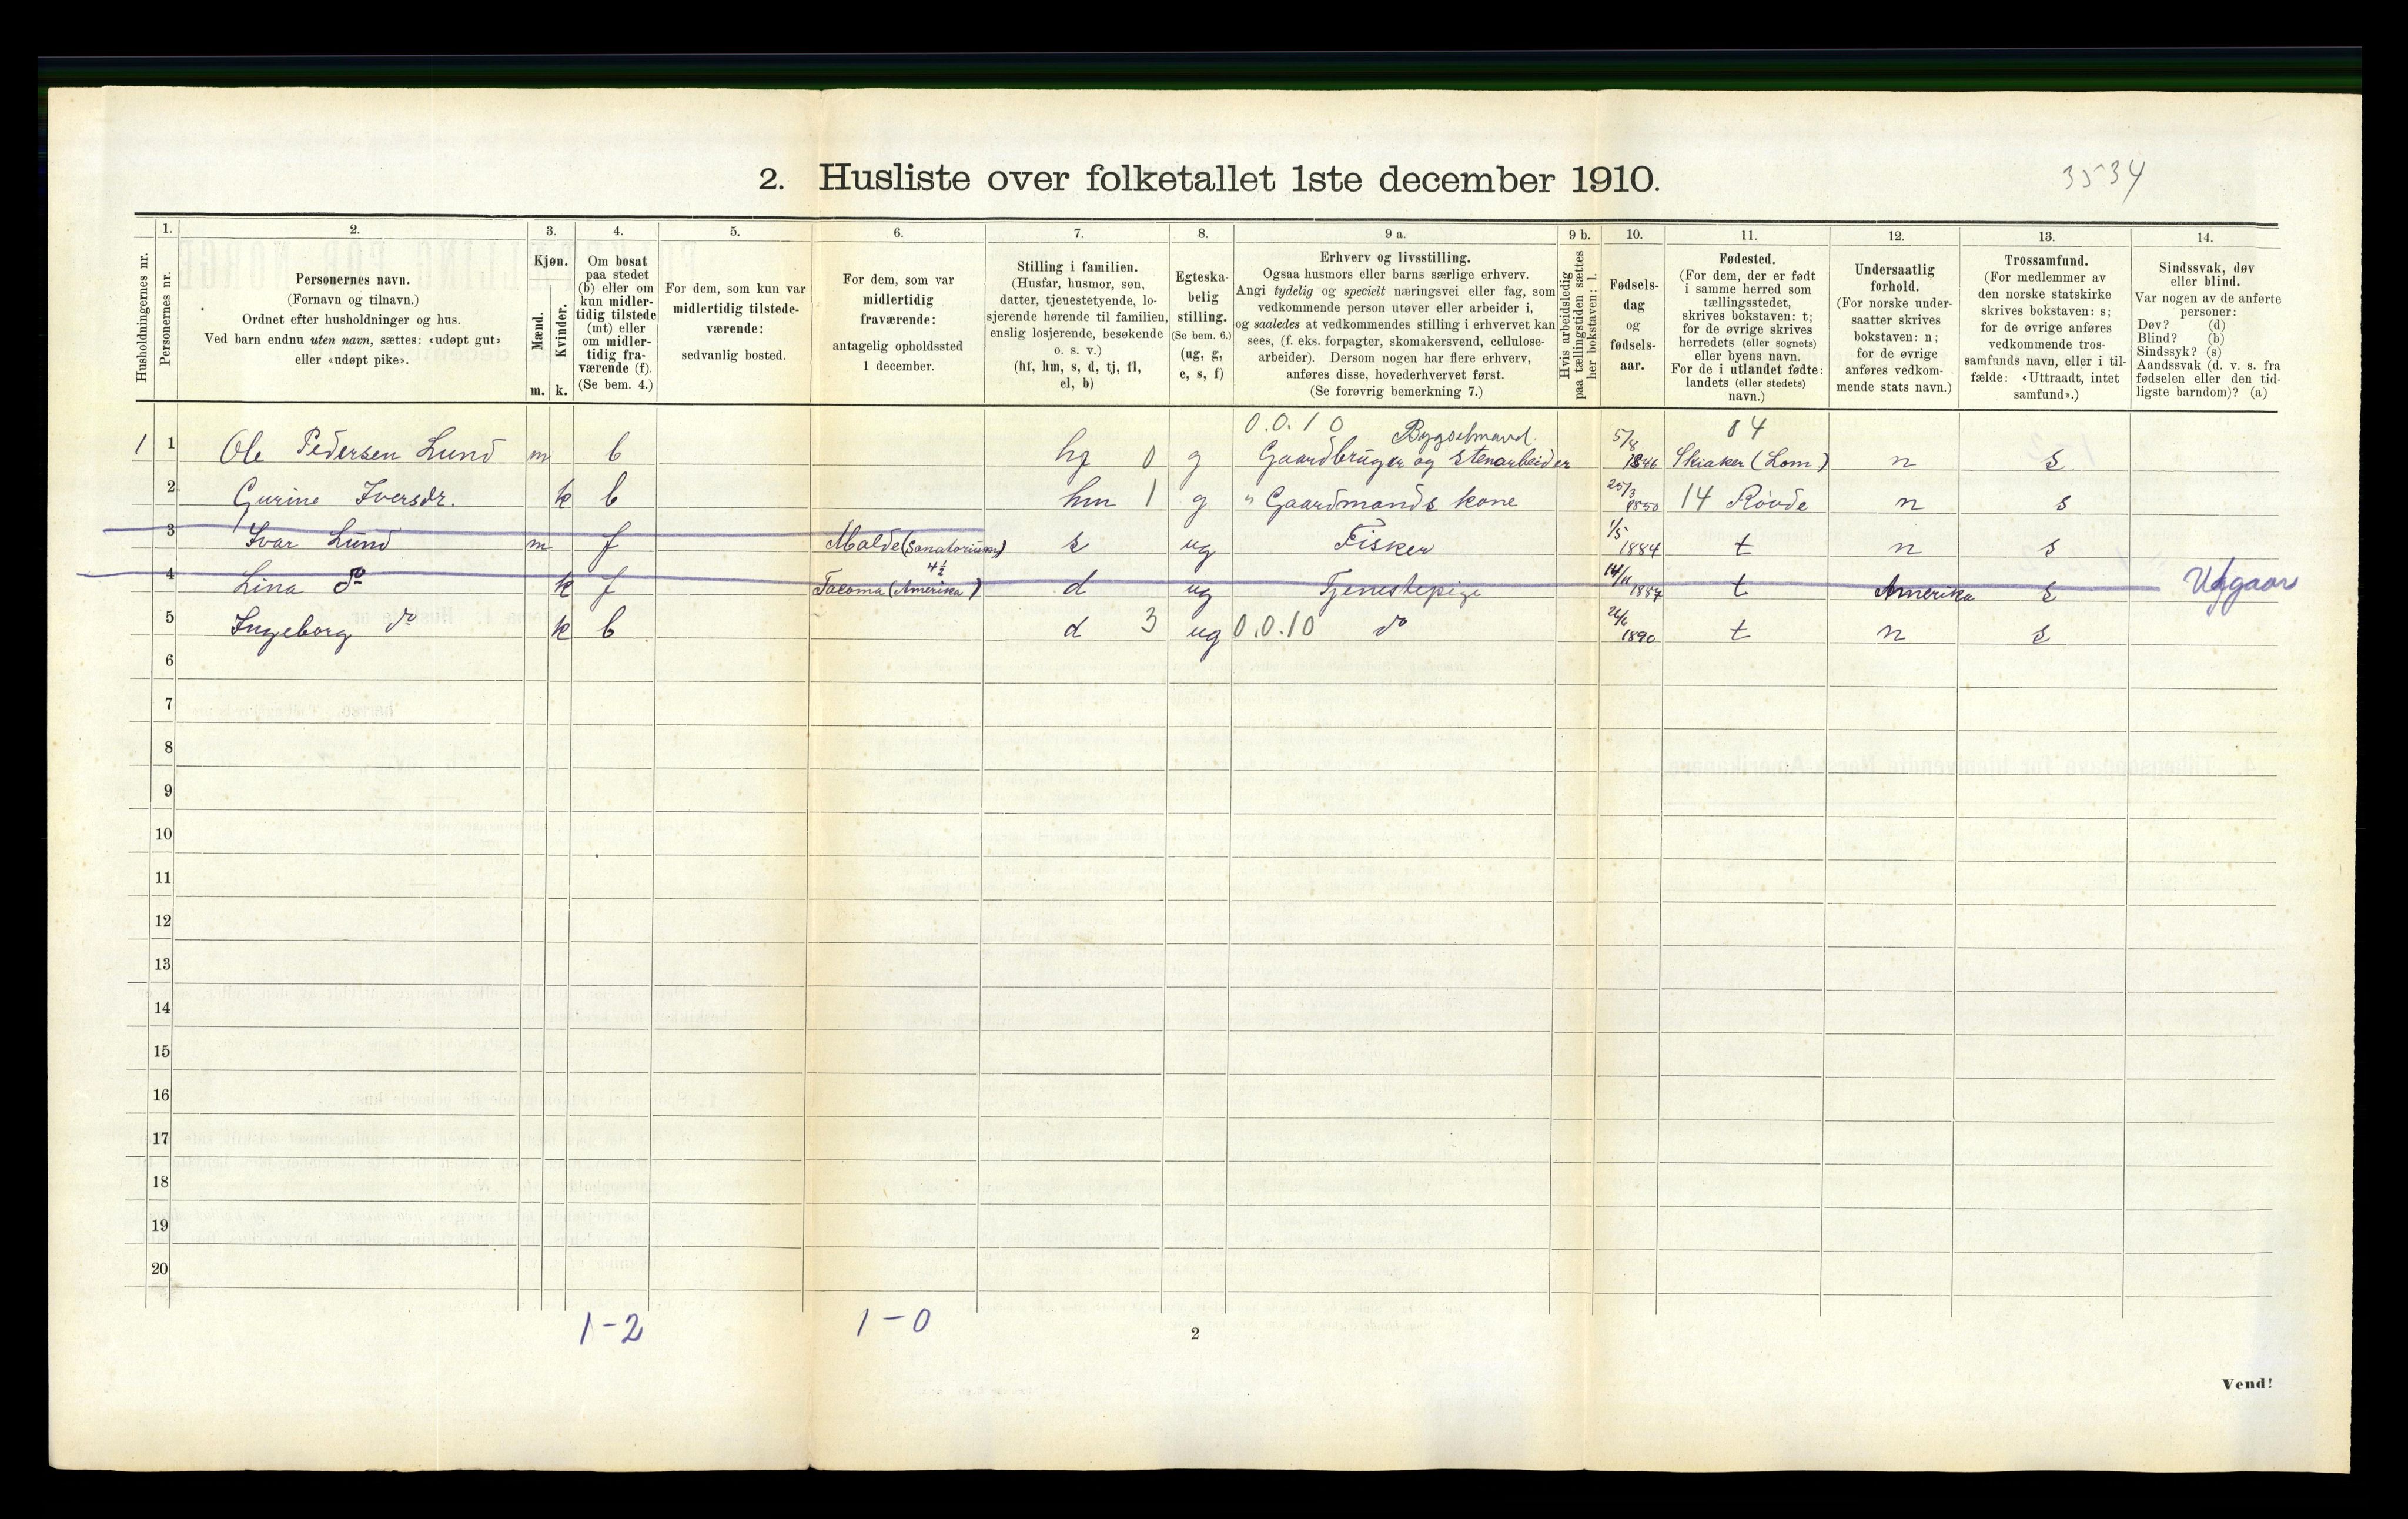 2. Husliste over folketallet 1ste december 1910.
3534
Husholdningernes nr.
1.
Personernes nr.
2.
Personernes navn.
(Fornavn og tilnavn.)
Ordnet efter husholdninger og hus.
Ved barn endnu uten navn, sættes: «udøpt gut»
eller «udøpt pike».
3.
Kjøn.
Mænd.
Kvinder.
m.
k.
4.
Om bosat
paa stedet
(b) eller om
kun midler-
tidig tilstede
(mt) eller
om midler-
tidig fra-
værende (f).
(Se bem. 4.)
5.
For dem, som kun var
midlertidig tilstede-
værende:
sedvanlig bosted.
6.
For dem, som var
midlertidig
fraværende:
antagelig opholdssted
1 december.
7.
Stilling i familien.
(Husfar, husmor, søn,
datter, tjenestetyende, lo-
sjerende hørende til familien,
enslig losjerende, besøkende
o. s. v.)
(hf, hm, s, d, tj, fl,
el, b)
8.
Egteska-
belig
stilling.
(Se bem. 6.)
(ug, g,
e, s, f)
9 a.
Erhverv og livsstilling.
Ogsaa husmors eller barns særlige erhverv.
Angi tydelig og specielt næringsvei eller fag, som
vedkommende person utøver eller arbeider i,
og saaledes at vedkommendes stilling i erhvervet kan
sees, (f. eks. forpagter, skomakersvend, cellulose-
arbeider). Dersom nogen har flere erhverv,
anføres disse, hovederhvervet først.
(Se forøvrig bemerkning 7.)
9 b.
Hvis arbeidsledig
paa tællingstiden sættes
her bokstaven: l.
10.
Fødsels-
dag
og
fødsels-
aar.
11.
Fødested.
(For dem, der er født
i samme herred som
tællingsstedet,
skrives bokstaven: t;
for de øvrige skrives
herredets (eller sognets)
eller byens navn.
For de i utlandet fødte:
landets (eller stedets)
navn.)
12.
Undersaatlig
forhold.
(For norske under-
saatter skrives
bokstaven: n;
for de øvrige
anføres vedkom-
mende stats navn.)
13.
Trossamfund.
(For medlemmer av
den norske statskirke
skrives bokstaven: s;
for de øvrige anføres
vedkommende tros-
samfunds navn, eller i til-
fælde: «Uttraadt, intet
samfund».)
14.
Sindssvak, døv
eller blind.
Var nogen av de anførte
personer:
Døv? (d)
Blind? (b)
Sindssyk? (s)
Aandssvak (d. v. s. fra
fødselen eller den tid-
ligste barndom)? (a)
0.0.10 Bygselmand. 84
1 1 Ole Pedersen Lund m b hf 0 g Gaardbruger og stenarbeider 5/8 1846 Skiaker (Lom) n s
2 Gurine Iversdr. k b hm 1 g " Gaardmands kone 25/3 1850 14 Rovde n s
3 Ivar Lund m f Molde (Sanatorium) s ug Fisker 1/5 1884 t n s
4 Lina do k f Tacoma (Amerika) 4½ d ug Tjenestepige 14/11 1887 t Amerika s Udgaar
5 Ingeborg do k b d 3 ug 0.0.10 do 1890 t n s
6
7
8
9
10
11
12
13
14
15
16
17
18
19
20
1-2
1-0
2
Vend!